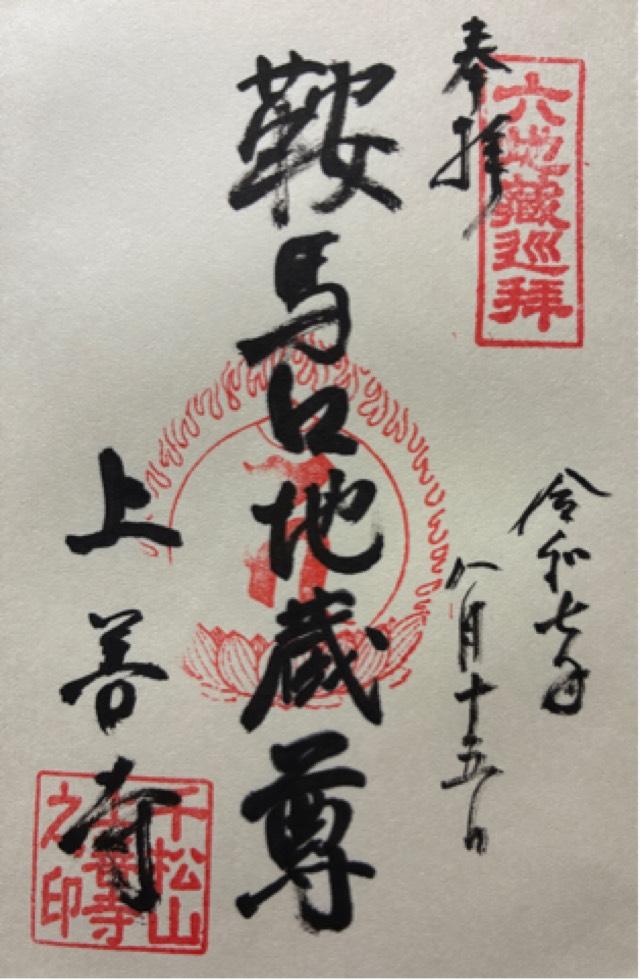 奉拝
六地蔵巡拝
令和七年
八月十五日
鞍馬口地蔵尊
上善寺
千松山
上善寺
之印